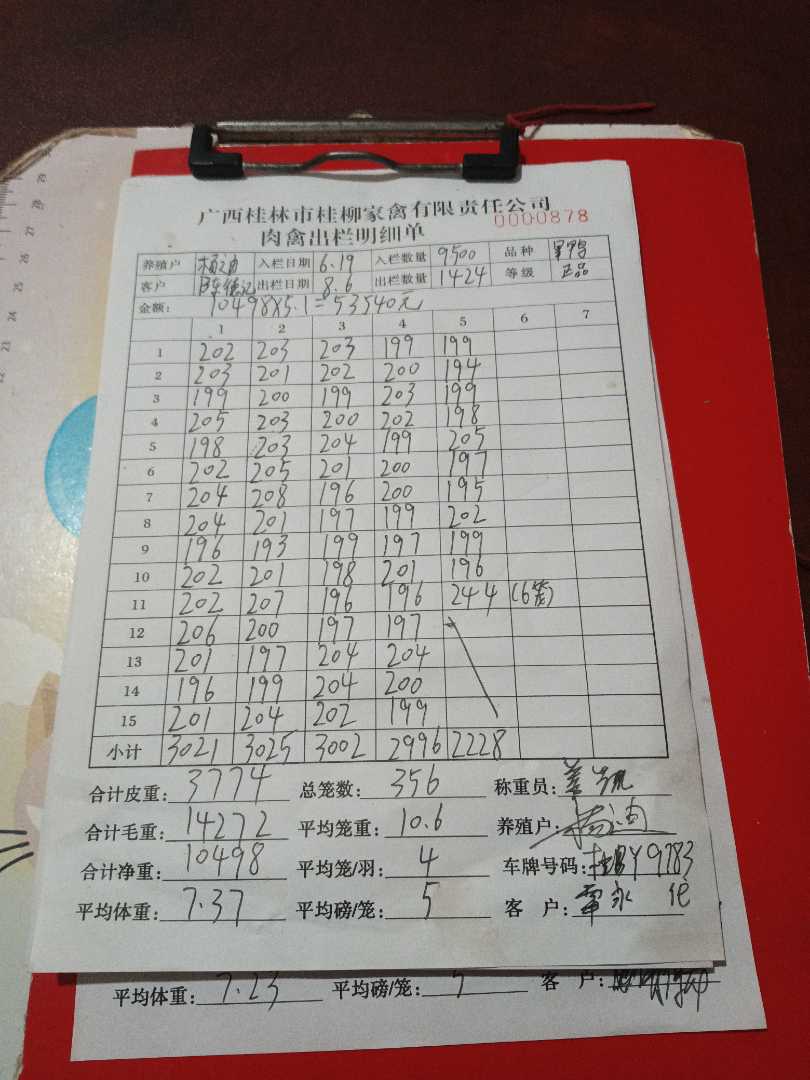 广西桂林市桂柳家禽有限责任公司
0000878
肉禽出栏明细单
养殖户 入栏日期 6.19 入栏数量 9500 品种
客户 出栏日期 8.6 出栏数量 1424 等级 正品
金额: 10498×5.1=53540元
1 2 3 4 5 6 7
1 202 203 203 199 199
2 203 201 202 200 194
3 199 200 199 203 199
4 205 203 200 202 198
5 198 203 204 199 205
6 202 205 201 200 197
7 204 208 196 200 195
8 204 201 197 199 202
9 196 193 199 197 199
10 202 201 198 201 196
11 202 207 196 196 244 (6笼)
12 206 200 197 197
13 201 197 204 204
14 196 199 204 200
15 201 204 202 199
小计 3021 3025 3002 2996 2228
合计皮重: 3774 总笼数: 356 称重员:
合计毛重: 14272 平均笼重: 10.6 养殖户:
合计净重: 10498 平均笼/羽: 4 车牌号码: Y9783
平均体重: 7.37 平均磅/笼: 5 客 户:
平均体重: 7.23 平均磅/笼: 客 户: